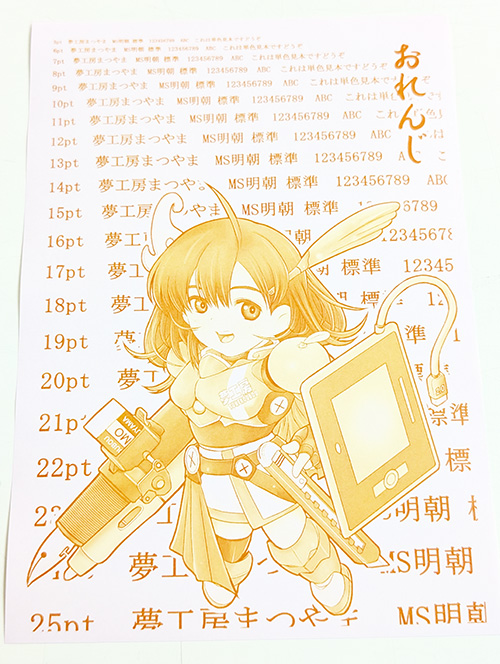 6pt 夢工房まつやま MS明朝 標準 123456789 ABC これは単色見本ですどうぞ
7pt 夢工房まつやま MS明朝 標準 123456789 ABC これは単色見本ですどうぞ
8pt 夢工房まつやま MS明朝 標準 123456789 ABC これは単色見本ですどうぞ
9pt 夢工房まつやま MS明朝 標準 123456789 ABC これは単色見本で
10pt 夢工房まつやま MS明朝 標準 123456789 ABC これは単色
11pt 夢工房まつやま MS明朝 標準 123456789 ABC これは
12pt 夢工房まつやま MS明朝 標準 123456789 ABC
13pt 夢工房まつやま MS明朝 標準 123456789
14pt 夢工房まつやま MS明朝 標準 123456789 ABC
15pt 夢工房まつやま MS明朝 標準 123456789
16pt 夢工房 明朝 標 2345678
17pt 夢工 標準 12345
18pt 夢工 準 12
19pt 夢工 準 1
20pt 夢 標
21pt 標準
22pt 標
明朝
夢工 MS明
25pt 夢工房まつやま MS明朝
おれんじ
MO